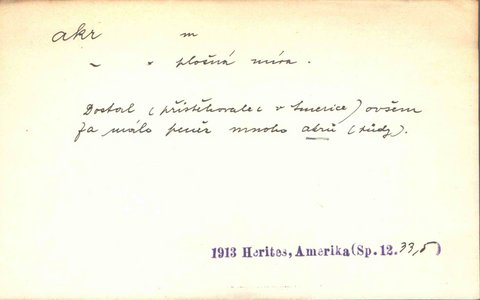 akr m
~ " plošná míra.
Dostal (přistěhovalec v Americe) ovšem
za málo peněz mnoho akrů (půdy).
1913 Herites, Amerika (Sp. 12. 33, 5)